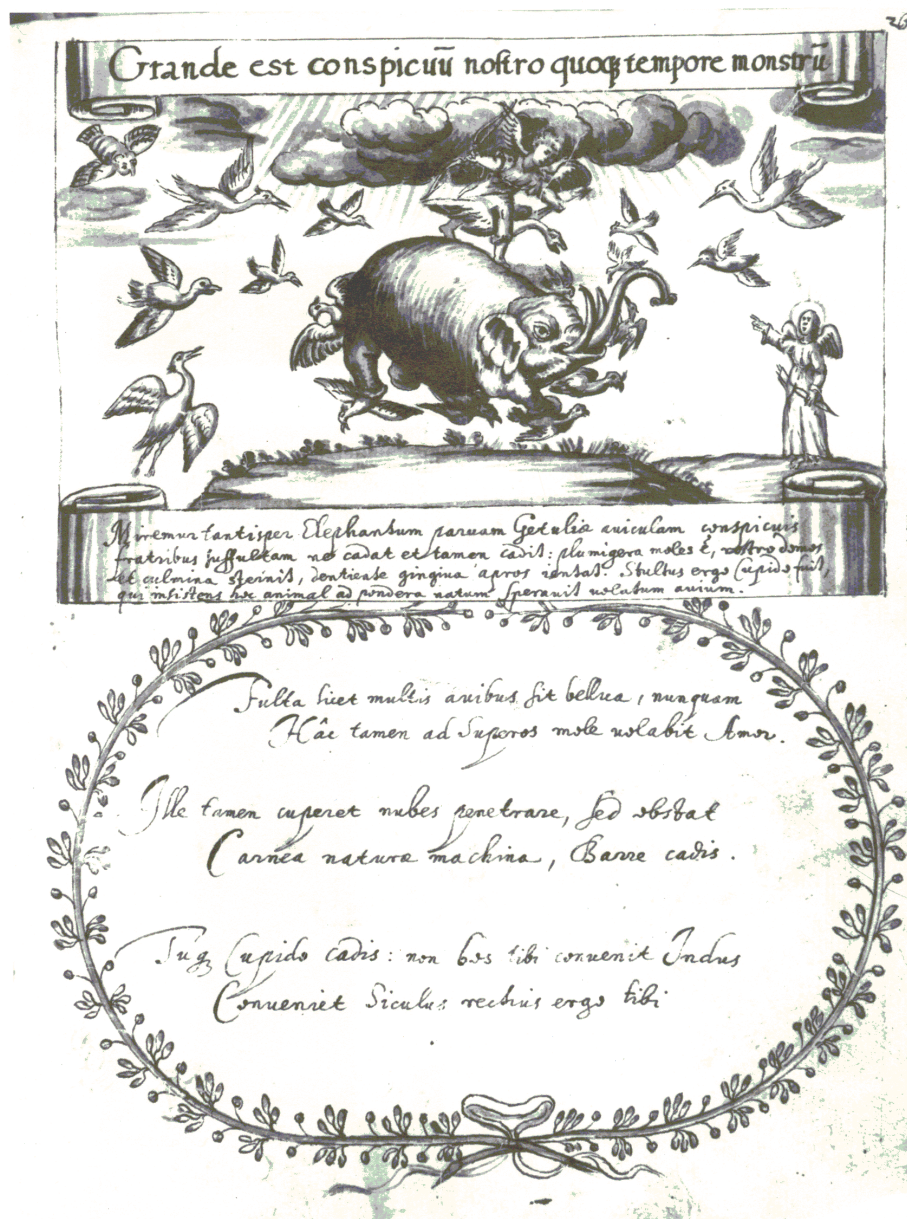 26
Grande est conspicuū nostro quoq tempore monstrū
Miremur tantisper Elephantum paruam Getuliæ auiculam conspicuis
fratribus suffultam ne cadat et tamen cadit: plumigera moles ẽ, rostro domos
et culmina sternit, dentiente gingiua apros ientat. Stultus ergo Cupido fuit,
qui insistens hoc animal ad pondera natum sperauit uolatum auium.
Fulta licet multis avibus sit bellua, nunquam
Hâc tamen ad Superos mole uolabit Amor.
Ille tamen cuperet nubes penetrare, sed obstat
Carnea naturæ machina, Barre cadis.
Tuq Cupido cadis: non bos tibi conuenit Indus
Conueniet Siculus rectius ergo tibi